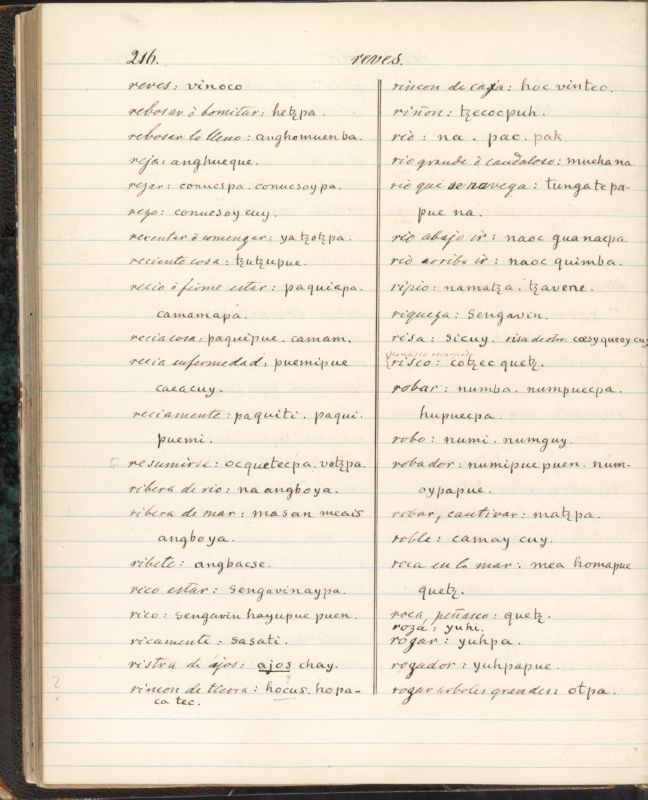 216. reves.
reves: vinoco
rebosar ò bomitar: hetȥpa.
rebosar lo lleno: anghomuenba.
reja: anghueque.
rezar: conuespa. conuesoypa.
rezo: conuesoycuy.
recentar ò comenzar: yatȥotȥpa.
reciente cosa: tȥutȥupue.
recio ò firme estar: paquiapa.
camamapa.
recia cosa: paquipue. camam.
recia enfermedad: puemipue
caeacuy.
reciamente: paquiti. paqui.
puemi.
resumirse: ocquetecpa. vetȥpa.
ribera de rio: na angboya.
ribera de mar: masan meais
angboya.
ribete: angbacse.
rico estar: sengavinaypa.
rico: sengavin hayupue puen.
ricamente: sasati.
ristra de ajos: ajos chay.
rincon de tierra: hocus. hopa-
ca tec.
?
rincon de caja: hoc vintec.
riñon: tȥecocpuh.
riò: na. pac. pak
rio grande ò caudaloso: muchana.
riò que se navega: tungatepa-
pue na.
riò abajo ir: naoc guanacpa.
riò arriba ir: naoc quimba.
ripio: namatȥa. tȥavene.
riqueza: sengavin.
risa: sicuy. risa de otro: cœsyquecy cuy
risco: cotȥec quetȥ.
robar: numba. numpuecpa.
hupuecpa.
robo: numi. numguy.
robador: numipue puen. num-
oypapue.
robar, cautivar: matȥpa.
roble: camay cuy.
roca en la mar: mea homapue
quetȥ.
roca, peñasco: quetȥ.
roza: yuhi.
rozar: yuhpa.
rozador: yuhpapue.
rozar arboles grandes: otpa.